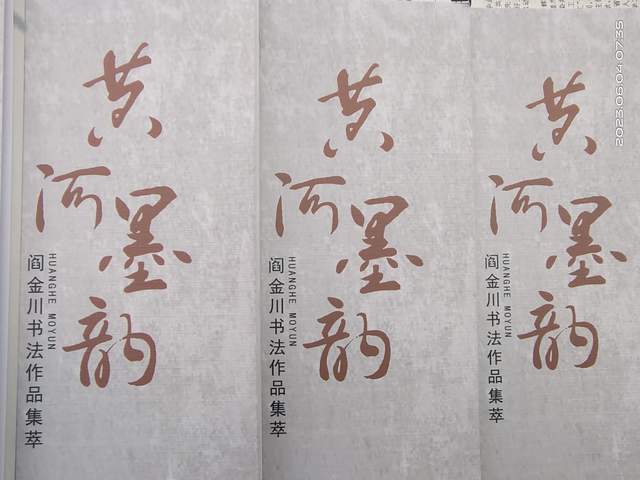 黄河墨韵
HUANGHE MOYUN
阎金川书法作品集萃
黄河墨韵
HUANGHE MOYUN
阎金川书法作品集萃
黄河墨韵
HUANGHE MOYUN
阎金川书法作品集萃
2023.06.04 07:35